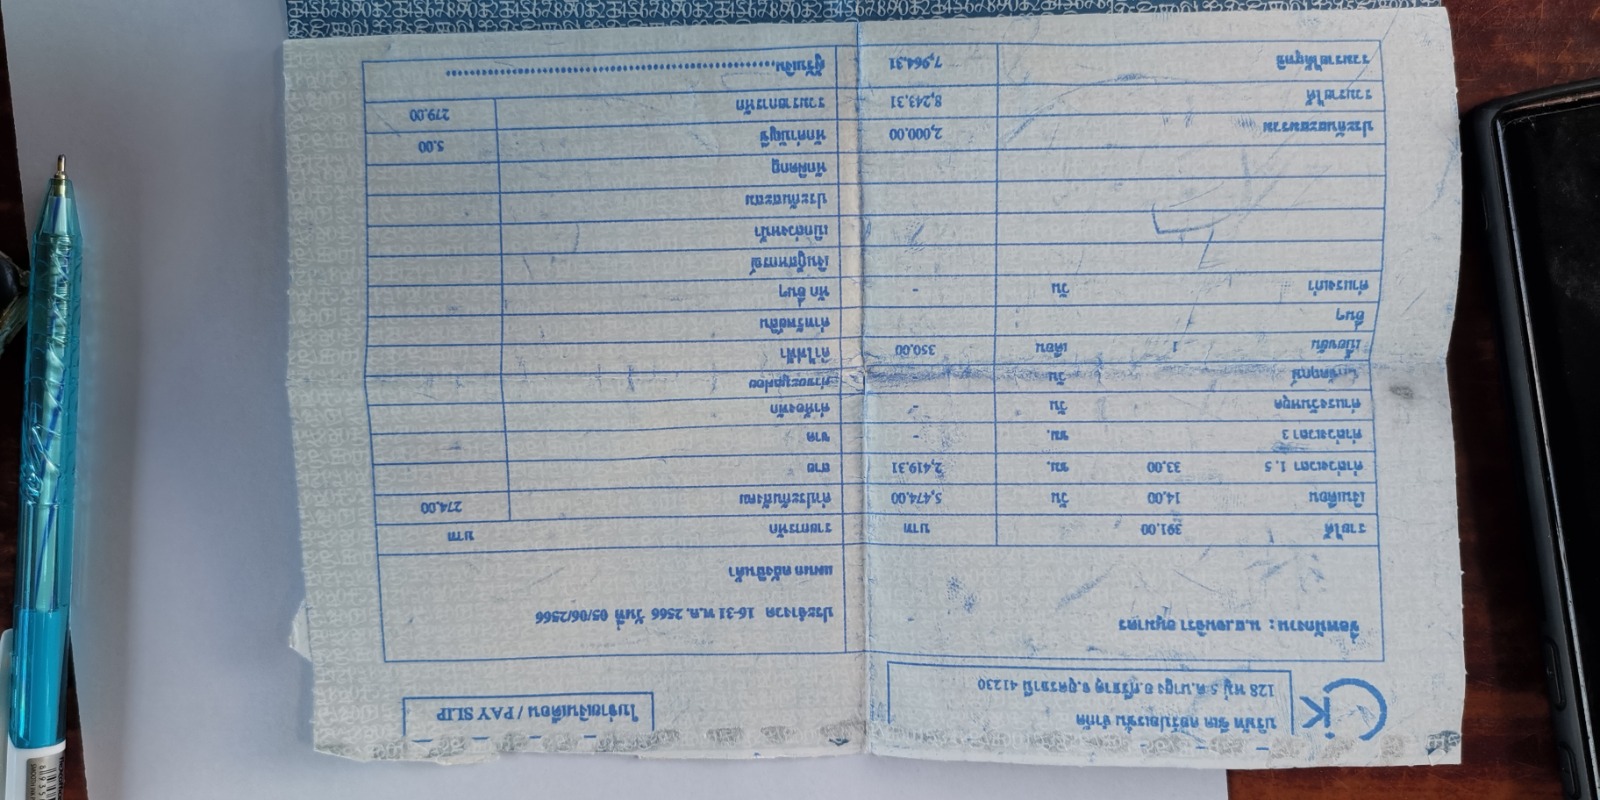 CK
บริษัท ซีเค คอร์ปอเรชั่น จำกัด
128 หมู่ 5 ต.นายูง อ.ศรีธาตุ จ.อุดรธานี 41230
ใบจ่ายเงินเดือน / PAY SLIP
ชื่อพนักงาน : น.ส.
ประจำงวด 16-31 พ.ค. 2566 วันที่ 05/06/2566
แผนก คลังสินค้า
รายได้ 391.00 บาท รายการหัก บาท
เงินเดือน 14.00 วัน 5,474.00 ค่าประกันสังคม 274.00
ค่าล่วงเวลา 1.5 33.00 ชม. 2,419.31 สาย
ค่าล่วงเวลา 3 ชม. - ขาด
ค่าแรงวันหยุด วัน - ค่าห้องพัก
วัน
เบี้ยขยัน 1 เดือน 350.00 ค่าไฟฟ้า
อื่นๆ ค่าทรัพย์สิน
ค่าแรงเก่า วัน - หัก อื่นๆ
เงินกู้สหกรณ์
เบิกล่วงหน้า
ประกันสะสม
หักผิดกฎ
ประกันสะสมรวม 2,000.00 หักค่าบัญชี 5.00
รวมรายได้ 8,243.31 รวมรายการหัก 279.00
รวมรายได้สุทธิ 7,964.31 ผู้รับเงิน